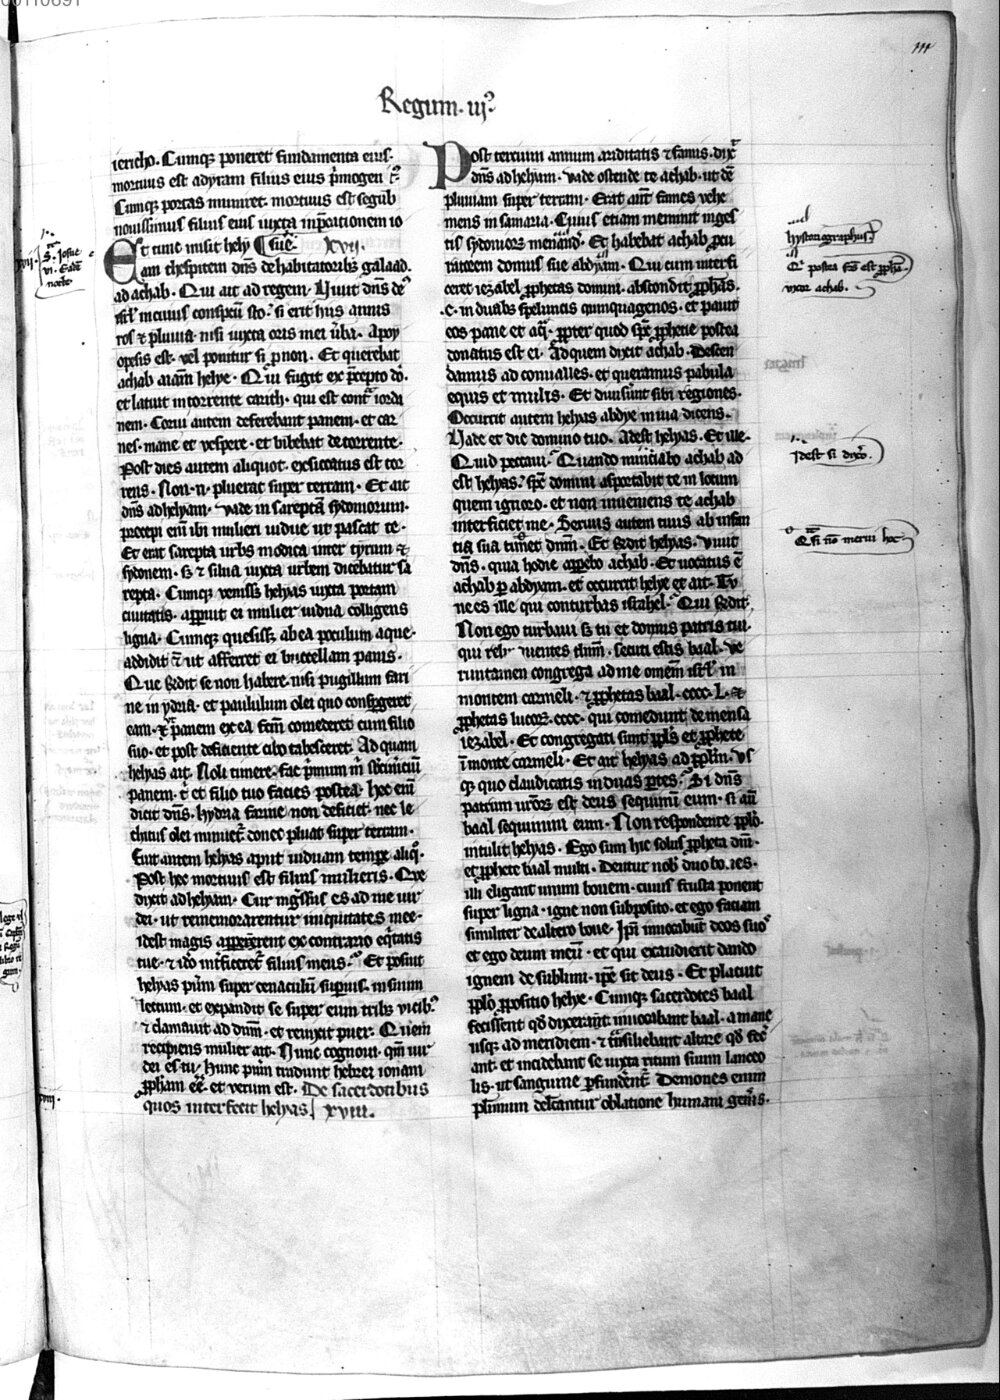 Regum. iij?
iericho. Cumq; poneret fundamenta eius.
mortuus est adyram filius eius p̄mogen
Cumq; portas muniret. mortuus est segub
nouissimus filius eius iuxta inp̄cationem io
Et tunc misit hely ¶ sue. XVII.
am thespitem dn̄s de habitatorib; galaad.
ad achab. Qui ait ad regem. Viuit dn̄s de
isrl̄ in cuius conspctu sto. si erit hiis annis
ros ⁊ pluuia. nisi iuxta oris mei ūba. Apoy
opesis est. vel ponitur si p non. Et querebat
achab aīam helye. Qui fugit ex p̄cepto dō.
et latuit in torrente carith. qui est cont̄ iorda
nem. Corui autem deferebant panem. et car
nes. mane et vespere. et bibebat de torrente.
Post dies autem aliquot. exsiccatus est tor
rens. Non .n. pluerat super terram. Et ait
dn̄s ad helyam. vade in sareptā sydoniorum.
precepi eni ibi mulieri uidue ut pascat te.
Et erat sarepta urbs modica inter tyrum ⁊
sydonem. s; ⁊ silua iuxta urbem dicebatur sa
repta. Cumq; uenisset helyas iuxta portam
ciuitatis. apparuit ei mulier uidua colligens
ligna. Cumq; quesisset ab ea poculum aque.
addidit ⁊ ut afferret ei buccellam panis.
Que r̄ndit se non habere. nisi pugillum fari
ne in ydria. et paululum olei quo conspgeret
eam. ⁊ panem ex ea factum comederet cum filio
suo. et post deficiente cibo tabesceret. Ad quam
helyas ait. Noli timere. fac p̄mum m̄ sbcin̄iciū
panem. t̄ et filio tuo facies postea. hec enī
dicit dn̄s. hydria farine non deficiet. nec le
chitus olei minuet̄ donec pluat super terram.
Fuit autem helyas aput uiduam tempe aliq̊.
Post hec mortuus est filius mulieris. Que
dixit ad helyam. Cur ingressus es ad me uir
dei. ut rememorarentur iniquitates mee.
idest magis apperent ex contrario equitatis
tue. ⁊ ido int̄ficeret̄ filius meus. Et posuit
helyas puerum super cenaculū superius. in suum
lectum. et expandit se super eum trib; uicib;.
⁊ clamauit ad dn̄m. et reuixit puer. Quem
recipiens mulier ait. Nunc cognoui. qm̄ uir
dei es tu. hunc puerum tradunt hebrei ionam
ꝓpham eē. et verum est. De sacerdotibus
quos interfecit helyas. XVIII.
Post tercium annum ariditatis ⁊ famis. dix̄
dn̄s ad helyam. vade ostende te achab. ut dē
pluuiam super terram. Erat aut̄ fames vehe
mens in samaria. Cuius etiam meminit in ges
tis sydonior; menand. Et habebat achab ꝓcu
ratorem domus sue abdyam. Qui cum interfi
ceret iezabel ꝓphetas domini. abscondit ꝓphās.
.c. in duab; speluncis quinquagenos. et pauit
eos pane et aq̄. ꝓpter quod sp̄c ꝓphetie postea
donatus est ei. Ad quem dixit achab. Descen
damus ad conualles. et queramus pabula
equis et mulis. Et diuisūt sibi regiones.
Occurrit autem helyas abdye in uia dicens.
Vade et die domino tuo. Adest helyas. Et ille.
Quid peccaui. Quando nunciabo achab ad
est helyas. sp̄c domini asportabit te in locum
quem ignoro. et non inueniens te achab
interficiet me. Seruus autem tuus ab infan
tia sua timet dn̄m. Et r̄ndit helyas. Viuit
dn̄s. quia hodie apperebo achab. Et uocatus ē
achab p abdyam. et occurrit helye et ait. Tu
ne es ille qui conturbas israhel. Qui r̄ndit.
Non ego turbaui s; tu et domus patris tui.
qui relinquentes dn̄m. secuti estis baal. Ve
runtamen congrega ad me omēm isrl̄ in
montem carmeli. ⁊ ꝓphetas baal. cccc. L. ⁊
ꝓphetas lucor; cccc. qui comedunt de mensa
iezabel. Et congregati sunt ppls̄ et ꝓphete
ī monte carmeli. Et ait helyas ad pplm̄. Vs
q; quo claudicatis in duas ptes. Si dn̄s
patrum ur̄or; est deus sequimini eum. si aut̄
baal sequimini eum. Non respondente pplo.
intulit helyas. Ego sum hic solus ꝓpheta dn̄i.
et ꝓphete baal multi. Dentur nob duo boues.
illi eligant unum bouem. cuius frusta ponent
super ligna. igne non subposito. et ego faciam
similiter de altero boue. Ipi inuocabunt deos suos
et ego deum meū. et qui exaudierit dando
ignem de sublimi. ipe sit deus. Et placuit
pplo ꝓpositio helye. Cumq; sacerdotes baal
fecissent qd̄ dixerant. inuocabant baal. a mane
usq; ad meridiem. ⁊ t̄nsiliebant altare qd̄ fec̄
ant. et incidebant se iuxta ritum suum lanceo
lis. ut sanguine pfunderent̄ Demones enim
plurimum delectantur oblatione humani gen̄is.
hystoriographus.
q̊ postea fcs est ꝓpha.
uicar achab.
Idest si dixo.
Q. si nō merui hoc
S. Iosue
vi. Eadē
nocte